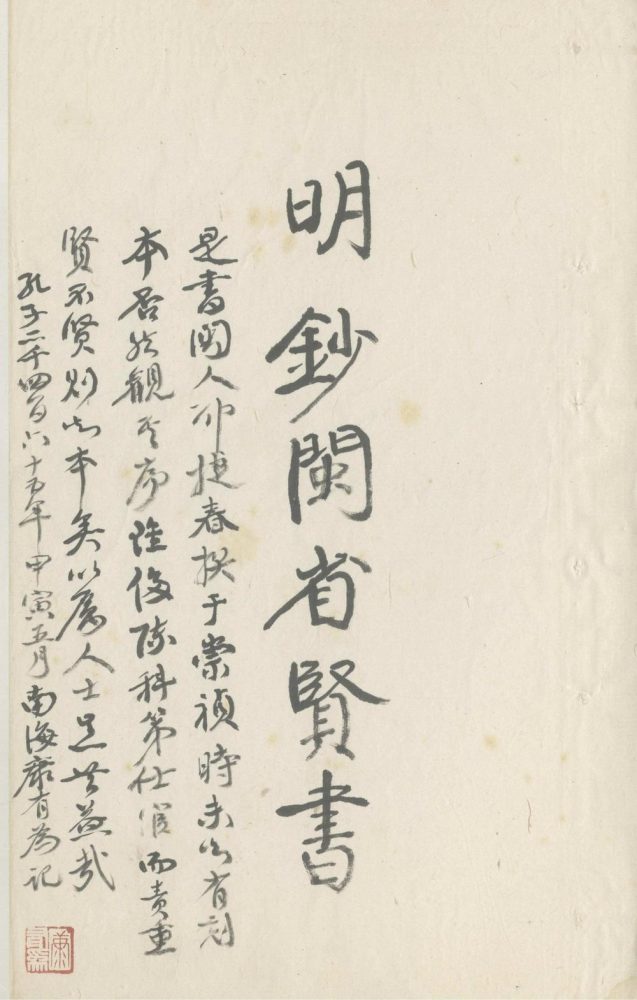 明鈔閩省賢書
是書閩人邵捷春撰于崇禎時未知有刻
本否然觀其序科第仕宦而責重
賢不賢則知本矣以厲人士哉
孔子二千四百六十五年甲寅五月南海康有為記